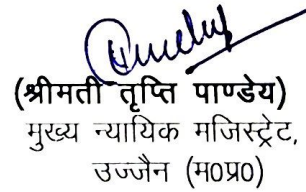 (श्रीमती तृप्ति पाण्डेय)
मुख्य न्यायिक मजिस्ट्रेट,
उज्जैन (म0प्र0)